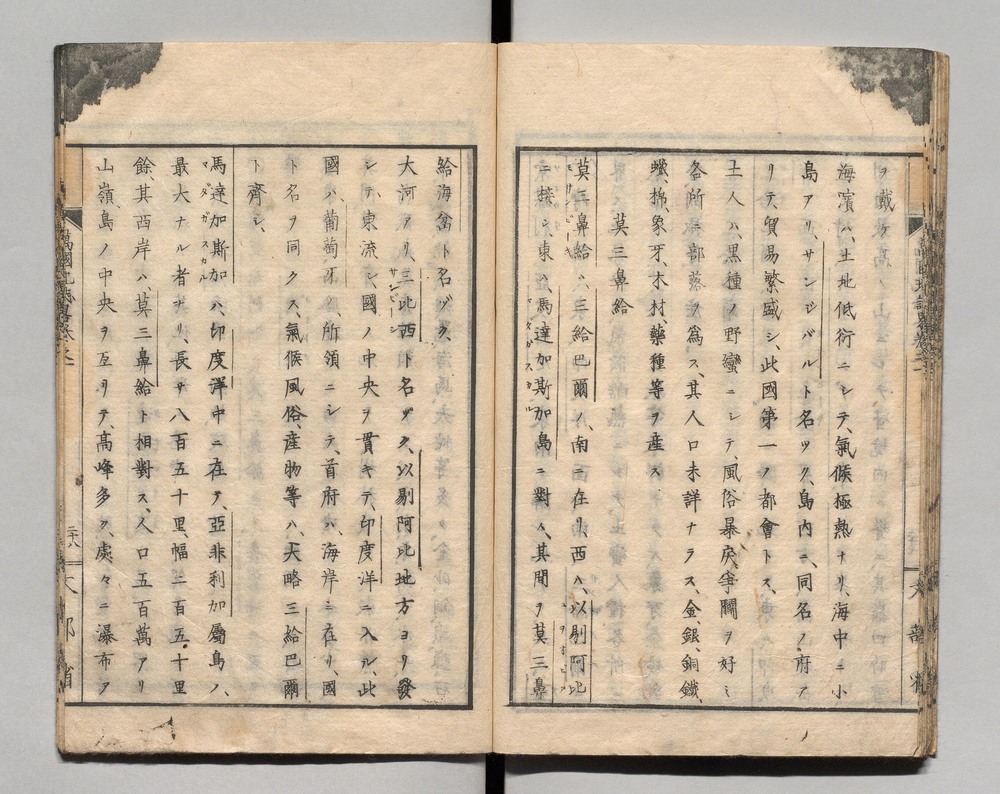 海濱ハ、土地低衍ニシテ、氣候極熱ナリ、海中ニ小
島アリ、サンジバルト名ツク、島内ニ、同名ノ府ア
リテ、貿易繁盛シ、此國第一ノ都會トス、
土人ハ、黒種ノ野蠻ニシテ、風俗暴戾、爭鬭ヲ好ミ
各所ニ部落ヲ爲ス、其人口未詳ナラス、金、銀、銅、鐵、
蠟、棉、象牙、木材、藥種等ヲ産ス
莫三鼻給
莫三鼻給ハ、三給巴爾ノ、南ニ在リ、西ハ、以剔阿比
ニ接シ、東ハ、馬達加斯加島ニ對ス、其間ヲ莫三鼻
給海峽ト名ヅク、
大河アリ、三比西ト名ヅク、以剔阿比地方ヨリ發
シテ、東流シ、國ノ中央ヲ貫キテ、印度洋ニ入ル、此
國ハ、葡萄牙ノ、所領ニシテ、首府ハ、海岸ニ在リ、國
ト名ヲ同クス、氣候風俗、産物等ハ、大略三給巴爾
ト齊シ、
馬達加斯加ハ、印度洋中ニ在テ、亞非利加屬島ノ、
最大ナル者ナリ、長サ八百五十里、幅二百五十里
餘、其西岸ハ、莫三鼻給ト相對ス、人口五百萬アリ
山嶺、島ノ中央ヲ亙リテ、高峰多ク、處々ニ瀑布ア
二十八